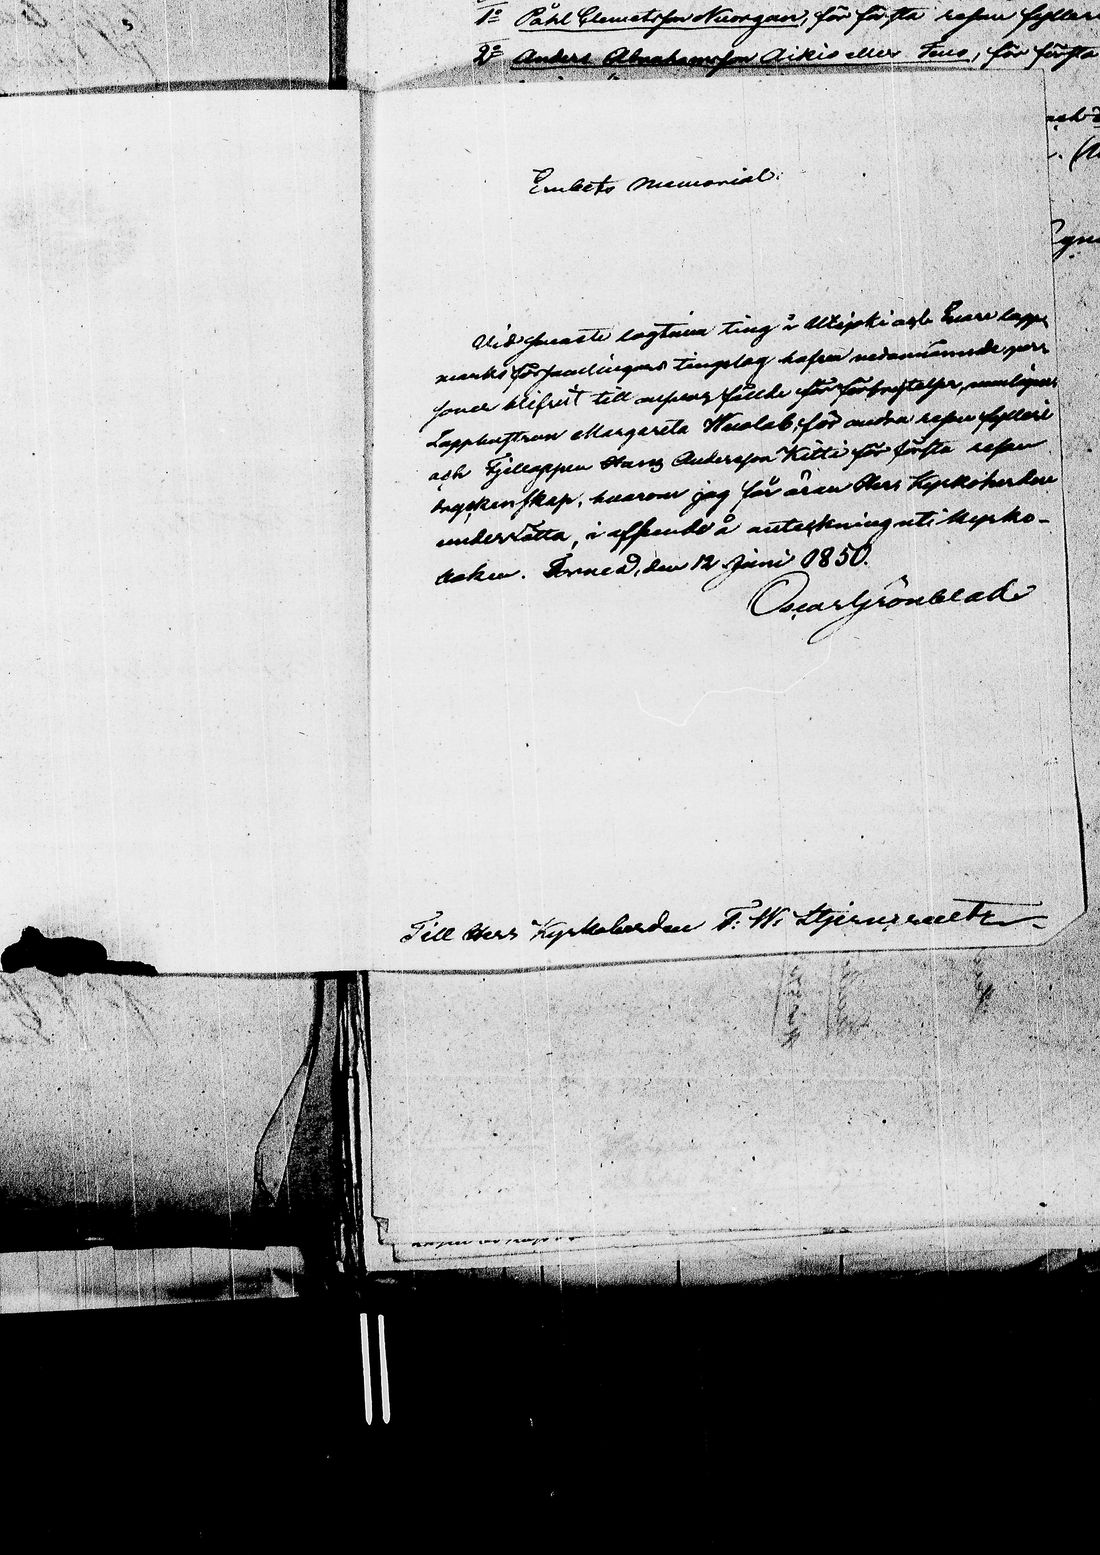 1º Påhl Clemetsson Nuorgan, för första resan fylleri
2º Anders Abrahamsson Aikio eller Feno, för första
och
Embets Memorial.
Vid senaste lagtima ting i Utsjoki och Enare lapp-
marks församlingars tingslag hafva nedannämnde per-
soner blifvit till ansvar fällde för förbrytelser, nemligen
Lapphustrun Margareta Wuolab, för andra resan fylleri
och Fjellappen Hans Andersson Kitti för första resan
dryckenskap, hvarom jag får äran Herr Kyrkoherden
underrätta, i afseende å anteckning uti Kyrko-
boken. Torneå, den 12 Juni 1850.
Oscar Grönblad
Till Herr Kyrkoherden F. W. Stjerncreutz